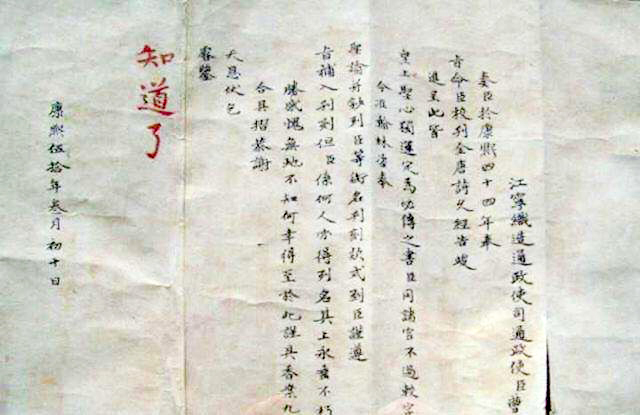 江寧織造通政使司通政使臣曹
臣於康熙四十四年奉
旨命臣校刊全唐詩久經告竣
進呈此皆
皇上聖心獨運定為必傳之書臣同諸官不過較字
今准翰林寄奉
聖諭并鈔到臣等銜名刊刻款式到臣謹遵
旨補入刊刻但臣係何人亦得列名其上永垂不朽
勝感愧無地不知何幸得至於此謹具香案九
合具摺恭謝
天恩伏乞
睿鑒
知道了
康熙伍拾年叁月初十日